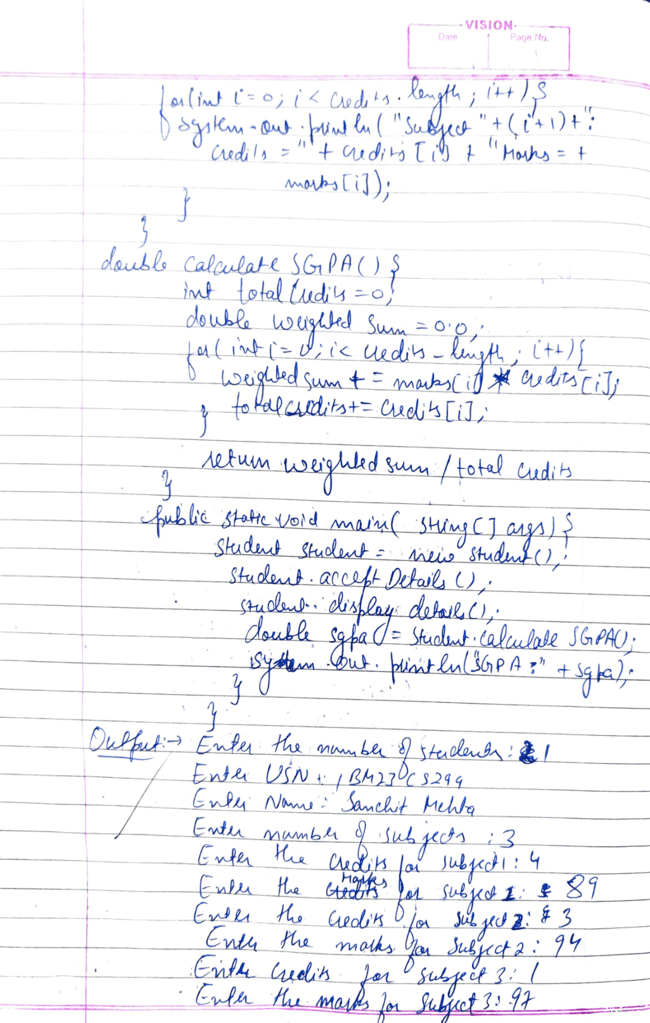 VISION
Date
Page No.
for(int i=0; i< credits.length; i++){
system.out.println("Subject "+(i+1)+":
credits = "+ credits[i] + "Marks = +
marks[i]);
}
}
double calculate SGPA() {
int total Credits =0;
double weighted Sum = 0.0;
for( int i=0; i< credits-length; i++){
weighted sum += marks[i] * credits[i];
totalcredits+= Credits[i];
}
return weighted sum / total credits
}
public static void main( string[] args) {
student student = new student();
student.accept Details ();
student.display details();
double sgpa = student.calculate SGPA();
system.out.println("SGPA:" + sgpa);
}
}
Output:→ Enter the number of students: 1
Enter USN: 1BM23CS299
Enter Name: Sanchit Mehta
Enter number of subjects : 3
Enter the credits for subject1: 4
Enter the Marks for subject 1: 89
Enter the credits for subject 2: 3
Enter the marks for Subject 2: 94
Enter credits for subject 3: 1
Enter the marks for Subject 3: 97